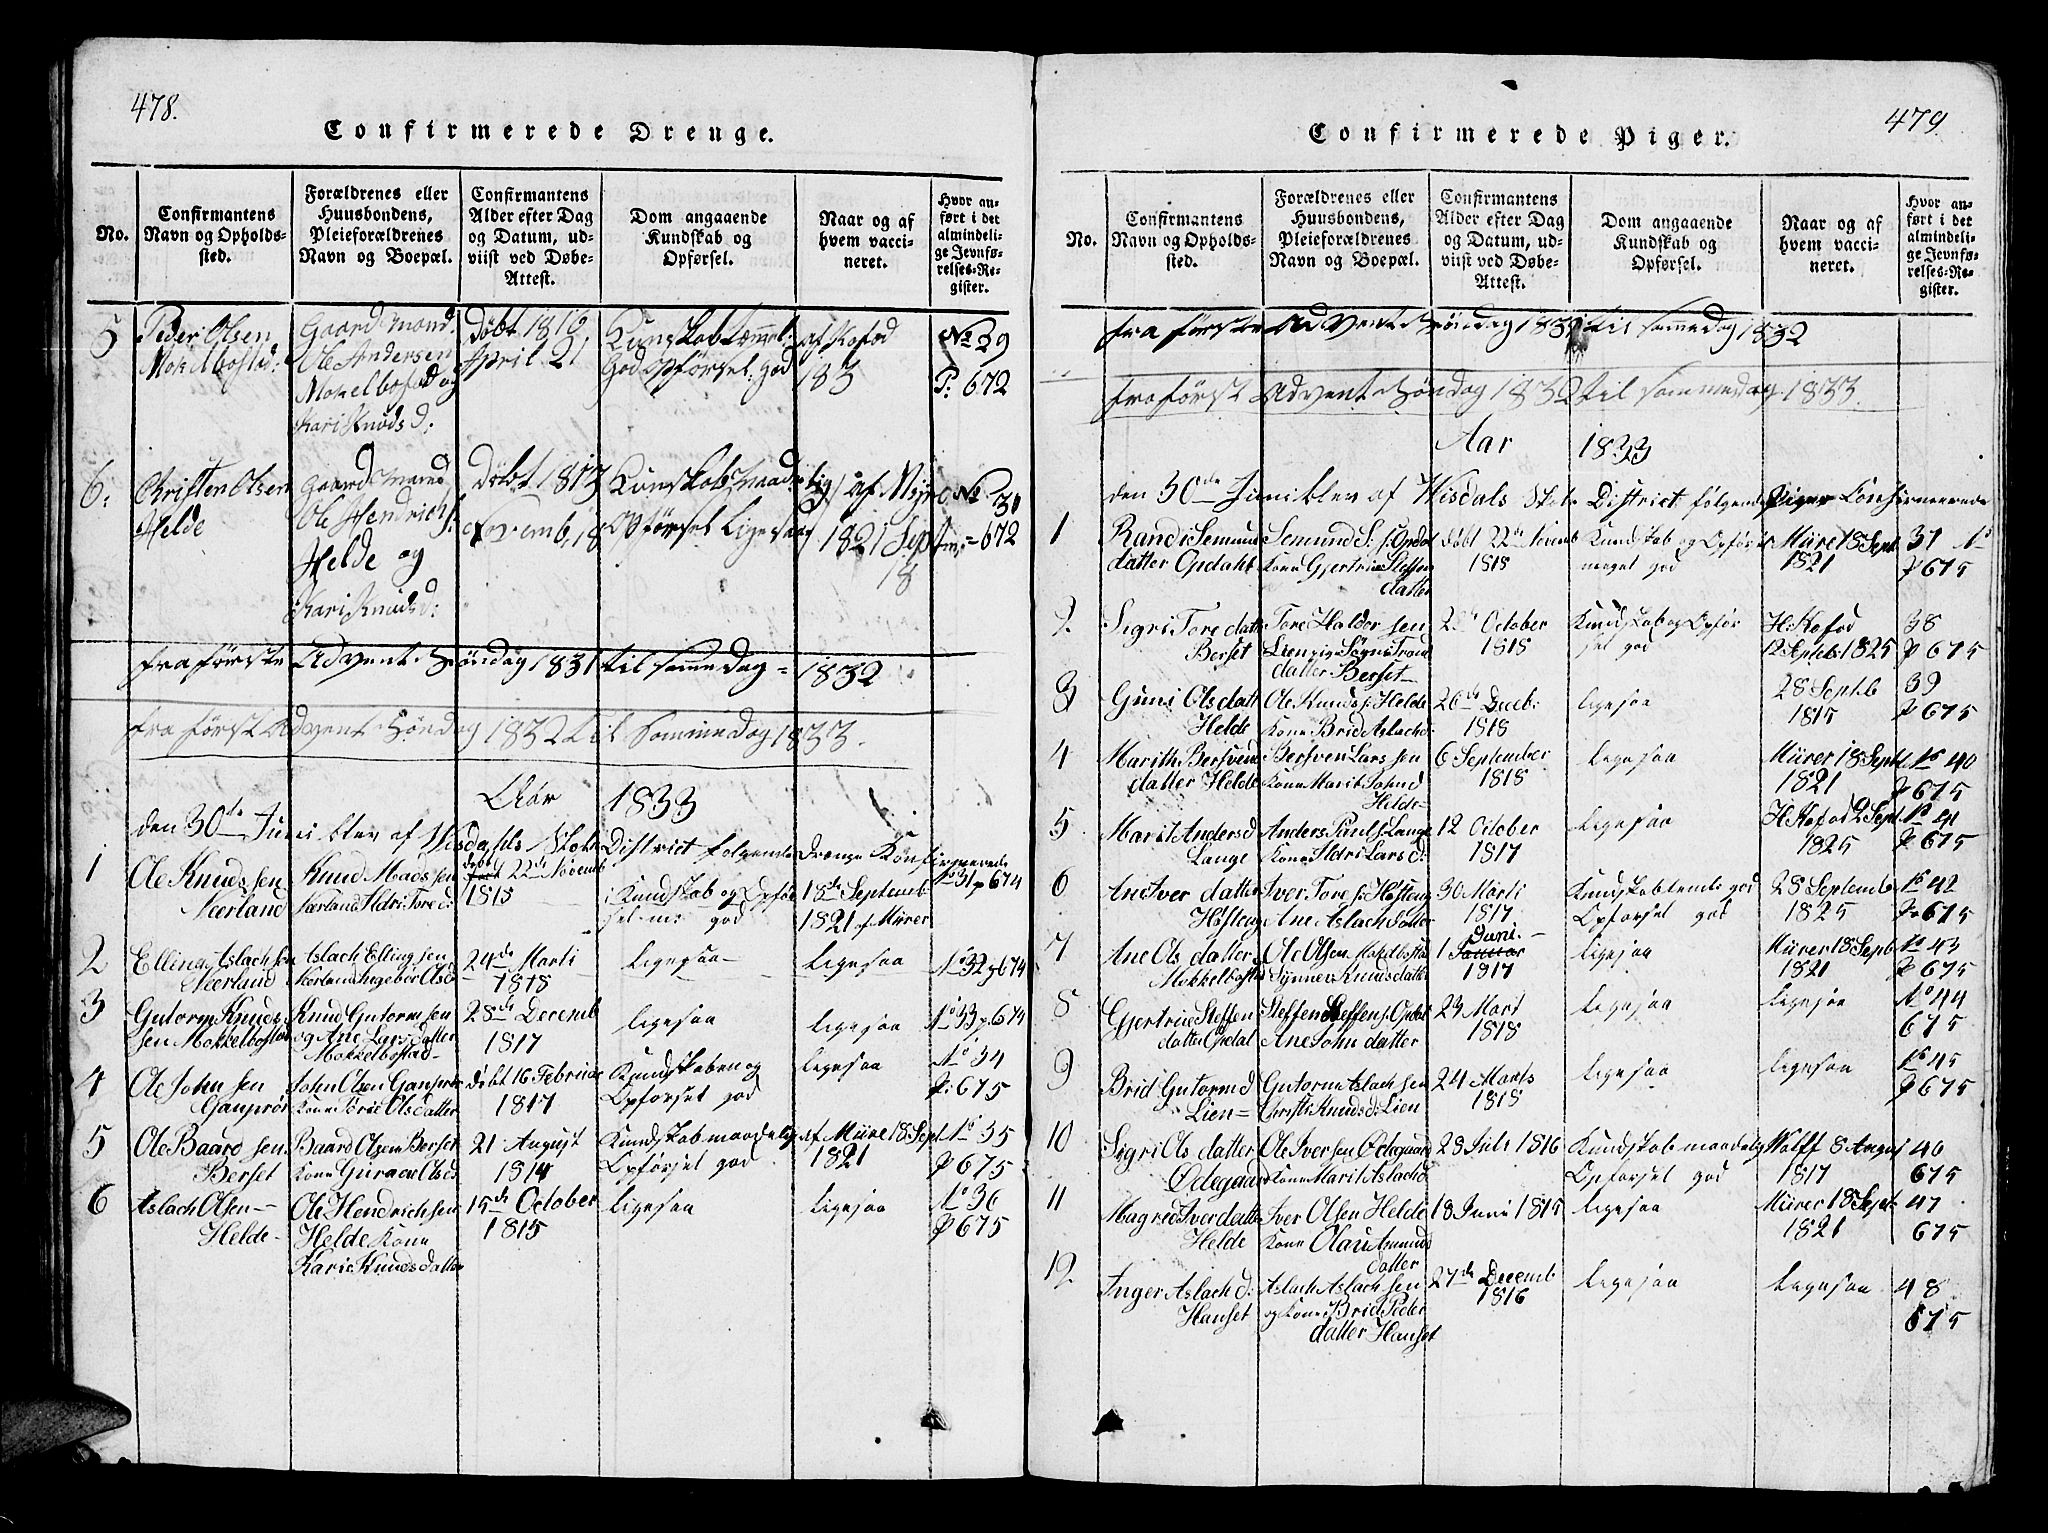 478.
Confirmerede Drenge.
No.
Confirmantens
Navn og Opholds-
sted.
Forældrenes eller
Huusbondens,
Pleieforældrenes
Navn og Boepæl.
Confirmantens
Alder efter Dag
og Datum, ud-
viist ved Døbe-
Attest.
Dom angaaende
Kundskab og
Opførsel.
Naar og af
hvem vacci-
neret.
Hvor an-
ført i det
almindeli-
ge Jevnfø-
relses-Re-
gister.
5
Peder Olsen
Mokelbostad:
Gaard Mand:
Ole Andersen
Mokelbostad og
Kari Knuds d:
Døbt 1816
April 21
Kunskab temmel:
God opførsel: God
af Kofod
183
No 29
P: 672
6:
Christen Olsen
Helde
Gaard Mand
Ole Hendrichs:
Helde og
Kari Knudsd:
Døbt 1813
Novemb. 18
Kunskab maadelig
Opførsel Ligesaa
1821 Sept
18
No 31
672
fra første Advent Søndag 1831 til samme dag 1832
fra først Advent Søndag 1832 til Samme dag 1833.
Aar 1833
den 30te Juni blev af Wisdals Stik District følgende Drenge Confirmerede
1
Ole Knuds sen
Neerland
Knud Mads sen
Neerland Ildri Tore d:
døbt 22de Novemb
1815
i Kundskab og Opfør
sel m: god
18de Septemb
1821 af Mürer
No 31 p 674
2
Elling Aslach sen
Neerland
Aslach Elling sen
Neerland Ingebør Olsd
24de Marti
1818
ligesaa
ligesaa
No 32 p 674
3
Gutorm Knuds
sen Mokkelbostad
Knud Gutorm sen
og Ane Lars datter
Mokkelbostad
28de Decemb
1817
ligesaa
ligesaa
No 33 p 674
4
Ole John sen
Ganprør
John Olsen Ganprør
Kone Sørie Olsdatter
døbt 16 Februar
1817
Kundskaben og
Opførsel god
ligesaa
No 34
P: 675
5
Ole Baard sen
Berset
Baard Olsen Berset
Kone Guraae Olsd
21 August
1814
Kundskab maadelig
Opførsel god
af Mürer 18 Sept
1821
No 35
P 675
6
Aslach Olsen
Helde
Ole Hendrich sen
Helde Kone
Karie Knudsdatter
15de October
1815
ligesaa
ligesaa
No 36
P 675
479
Confirmerede Piger.
No.
Confirmantens
Navn og Opholds-
sted.
Forældrenes eller
Huusbondens,
Pleieforældrenes
Navn og Boepæl.
Confirmantens
Alder efter Dag
og Datum, ud-
viist ved Døbe-
Attest.
Dom angaaende
Kundskab og
Opførsel.
Naar og af
hvem vacci-
neret.
Hvor an-
ført i det
almindeli-
ge Jevnfø-
relses-Re-
gister.
fra første Advent Søndag 1831 til samme dag 1832
fra først Advent Søndag 1832 til samme dag 1833.
Aar 1833
den 30de Juni blev af Wisdals Stik District følgende Piger Confirmerede
1
Randi Semund
datter Opdahl
Semund S: s: Opdal
Kone Gjertrie Steffen
datter
døbt 22de Novemb
1818
Kundskab og Opførsel
meget god
Mürer 18 Sept
1821
37 No
P 675
2
Sigri Tore datter
Berset
Tore Haldor sen
datter Berset
October
1818
Kundskab og Opfør
sel god
H: Kofod
12 Septeb: 1825
38
P 675
3
Guni Olsdatt
Helde
Ole Knuds s: Helde
Kone Brid Aslachd:
26de Decb:
1818
ligesaa
28 Septb
1815
39
P 675
4
Marith Bersvend
datter Helde
Bersven Lars sen
Kone Marit John d
Helde
6 September
1818
ligesaa
Mürer 18 Sept
1821
No 40
P 675
5
Marit Andersd
Lange
Anders Paul s: Lange
Kone Ildri Lars d:
12 October
1817
ligesaa
H Kofod 2 Sept
1825
No 41
P 675
6
Ane Iver datter
Høsteng
Iver Tore s: Høsteng
Ane Aslach datter
30 Marti
1817
Kundskab temli god
Opførsel god
28 Septemb
1825
No 42
P 675
7
Ane Ols datter
Mokkelbostad
Ole Olsen Mokelbostad
Synner Knudsdatter
Juni.
1 Januar
1817
ligesaa
Mürer 18 Septb
1821
No 43
P 675
8
Gjertrue Steffen
datter Opdal
Steffen Steffen s: Opdal
Ane John datter
23 Mart
1818
ligesaa
ligesaa
No 44
675
9
Brid Gutorm d
Lien
Gutorm Aslach sen
Christi Knuds d: Lien
24 Marts
1818
ligesaa
ligesaa
No 45
P 675
10
Sigri Ols datter
Ødegaard
Ole Iversen Ødegaard
Kone Marit Aslachd
28 Juli 1816
Kundskab maadelig
Opførsel god
Wolff 8 August
1817
46
675
11
Magrid Iver datter
Helde
Iver Olsen Helde
Kone Olau Amund
datter
18 Juni 1815
ligesaa
Mürer 18 Sept
1821
47
675
12
Inger Aslach d:
Hanset
Aslach Aslach sen
og Kone Brid Peder
datter Hanset
27de Decemb
1816
ligesaa
ligesaa
48
675